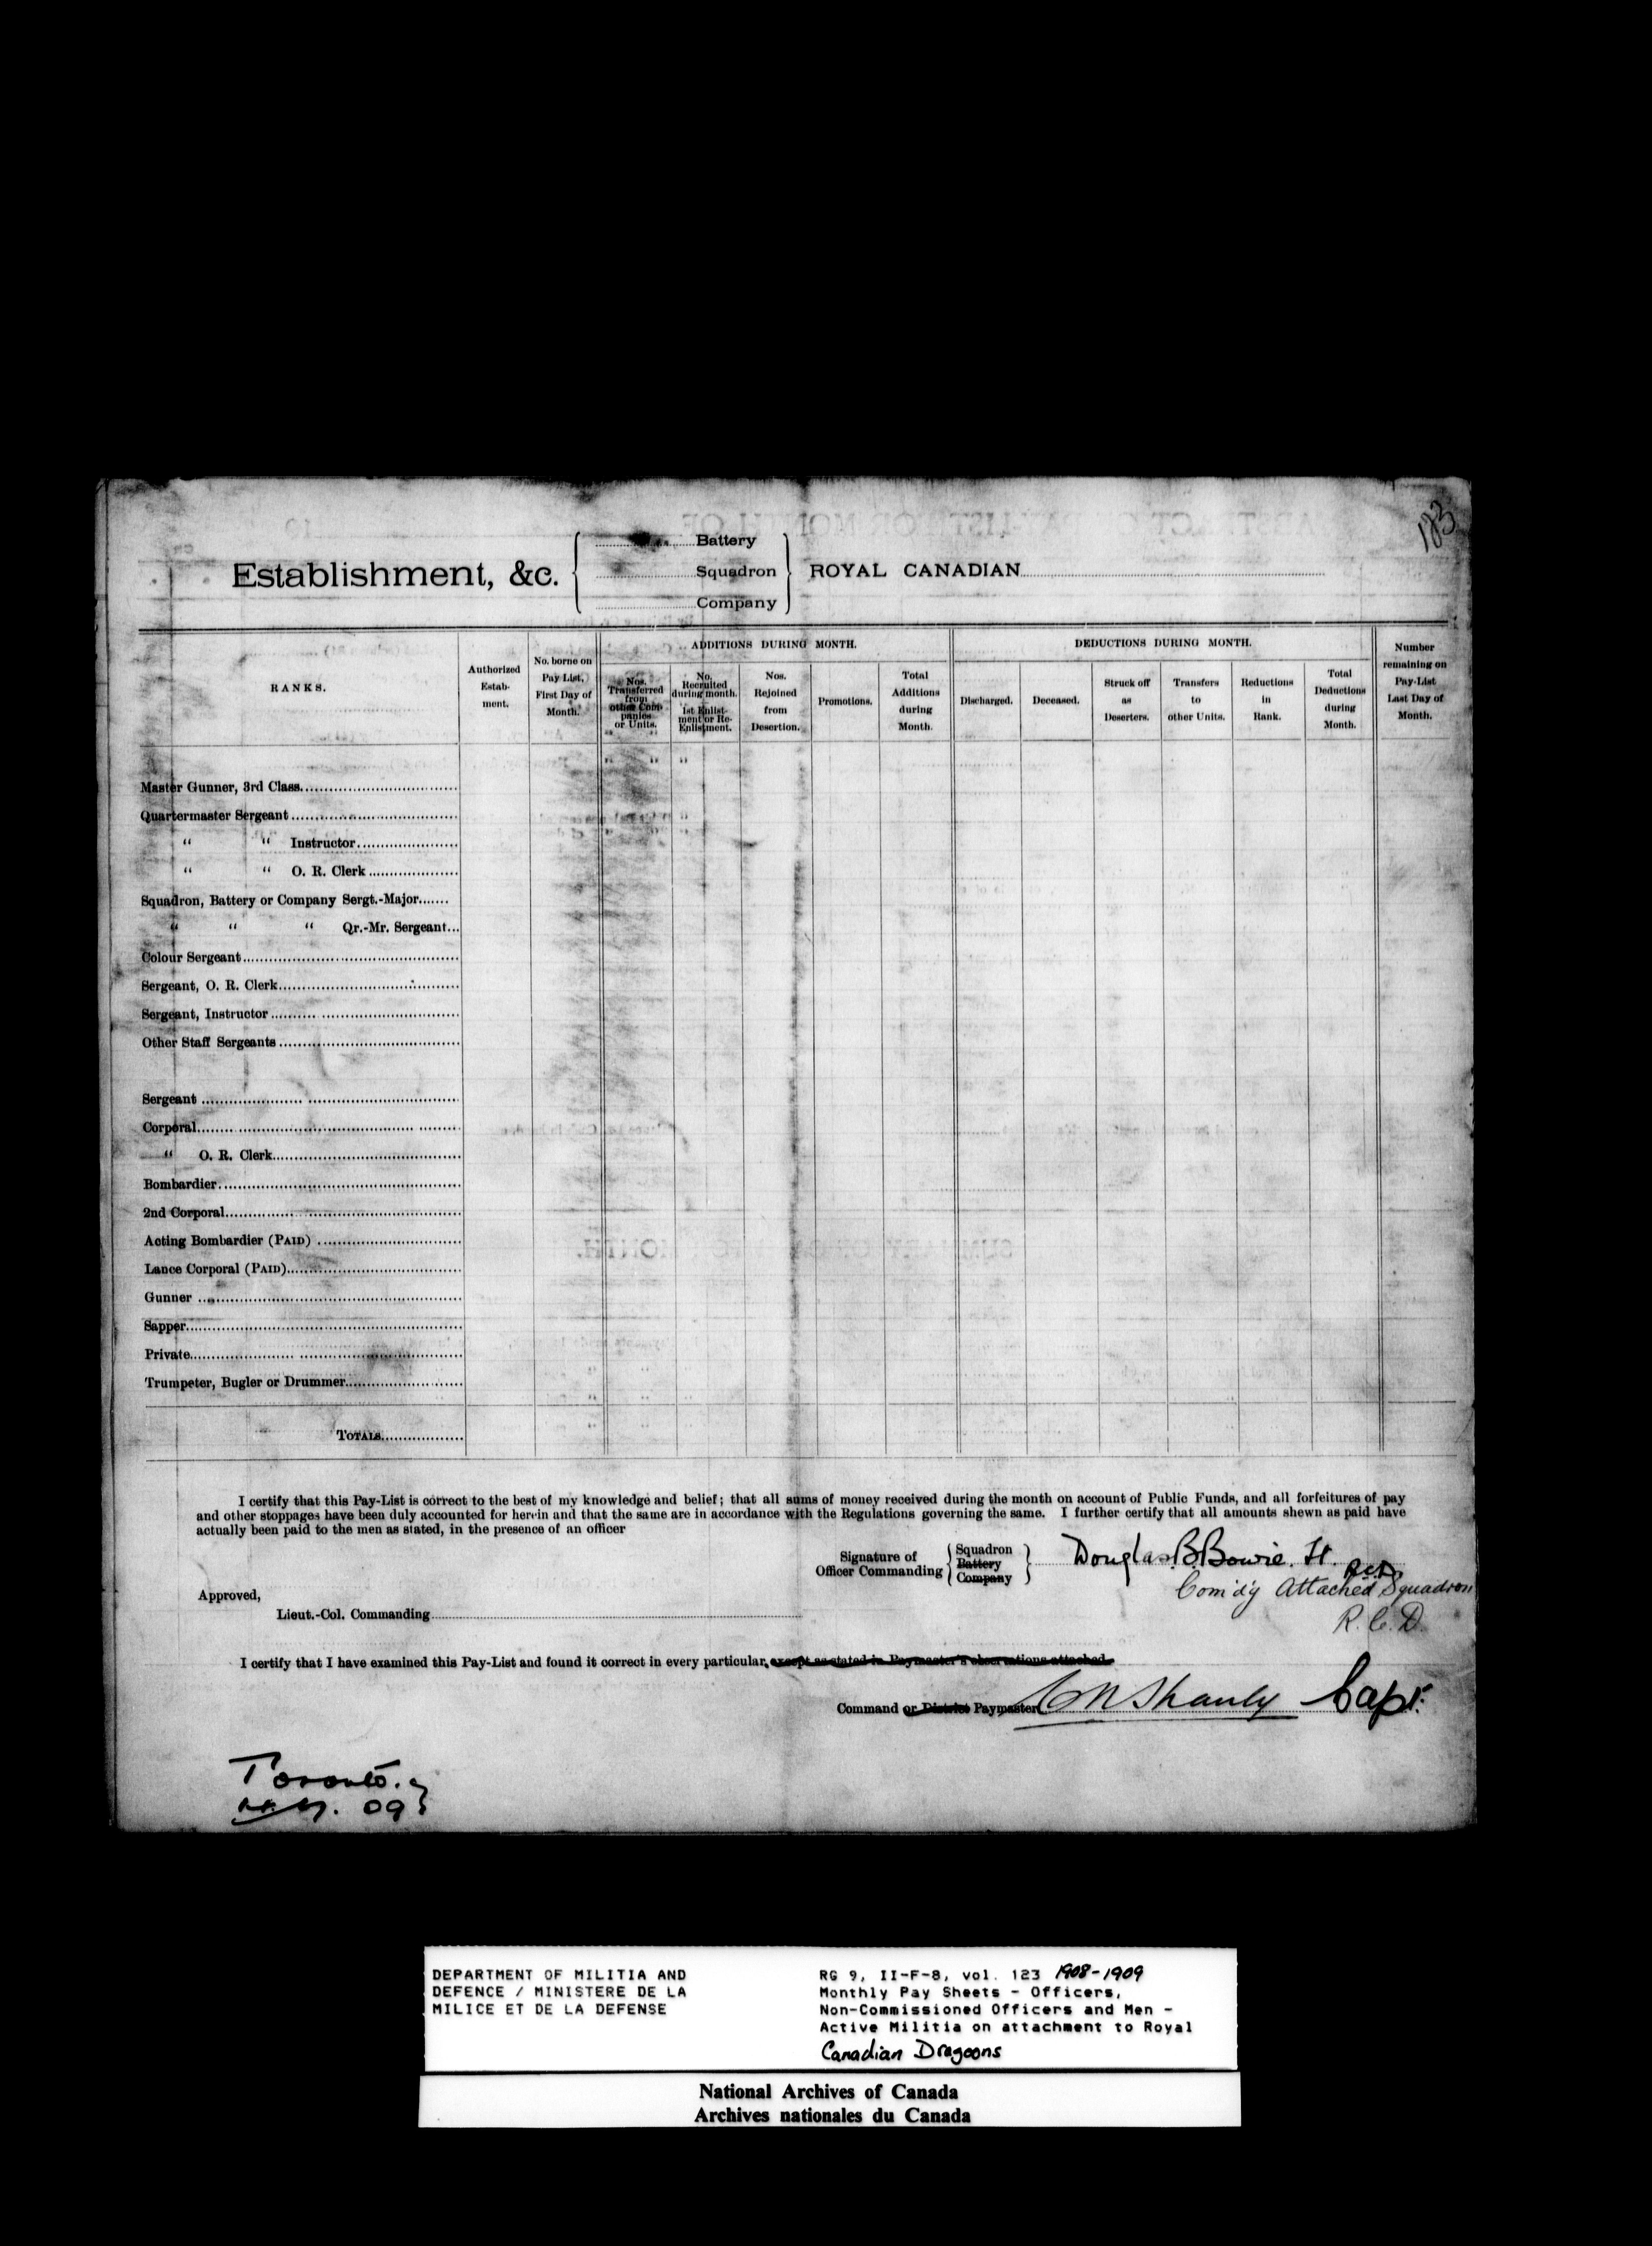 183
Battery
Establishment, &c. Squadron ROYAL CANADIAN
Company
RANKS.
Authorized Estab- ment.
No. borne on Pay List, First Day of Month.
ADDITIONS DURING MONTH.
Nos. Transferred from other Com- panies or Units.
No. Recruited during month. 1st Enlist- ment or Re- Enlistment.
Nos. Rejoined from Desertion.
Promotions.
Total Additions during Month.
DEDUCTIONS DURING MONTH.
Discharged.
Deceased.
Struck off as Deserters.
Transfers to other Units.
Reductions in Rank.
Total Deductions during Month.
Number remaining on Pay-List Last Day of Month.
Master Gunner, 3rd Class
Quartermaster Sergeant
" " Instructor
" " O. R. Clerk
Squadron, Battery or Company Sergt.-Major
" " " Qr.-Mr. Sergeant
Colour Sergeant
Sergeant, O. R. Clerk
Sergeant, Instructor
Other Staff Sergeants
Sergeant
Corporal
" O. R. Clerk
Bombardier
2nd Corporal
Acting Bombardier (PAID)
Lance Corporal (PAID)
Gunner
Sapper
Private
Trumpeter, Bugler or Drummer
TOTALS
I certify that this Pay-List is correct to the best of my knowledge and belief; that all sums of money received during the month on account of Public Funds, and all forfeitures of pay
and other stoppages have been duly accounted for herein and that the same are in accordance with the Regulations governing the same. I further certify that all amounts shewn as paid have
actually been paid to the men as stated, in the presence of an officer
Signature of Officer Commanding Squadron Battery Company Douglas B. Bowie. Lt. R.C.D.
Com'd'g Attached Squadron
R. C. D.
Approved,
Lieut.-Col. Commanding
I certify that I have examined this Pay-List and found it correct in every particular, except as stated in Paymaster's observations attached.
Command or District Paymaster CN Shanly Capt.
Toronto.
09
DEPARTMENT OF MILITIA AND
DEFENCE / MINISTERE DE LA
MILICE ET DE LA DEFENSE
RG 9, II-F-8, vol. 123 1908-1909
Monthly Pay Sheets - Officers,
Non-Commissioned Officers and Men -
Active Militia on attachment to Royal
Canadian Dragoons
National Archives of Canada
Archives nationales du Canada